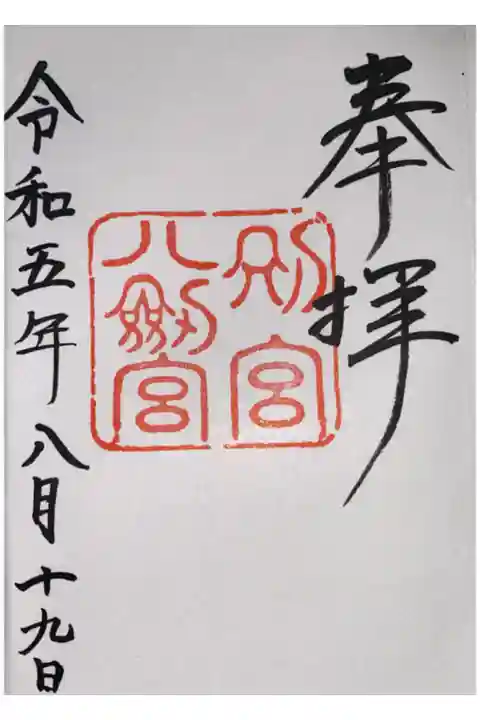 奉拝
別宮
八剱宮
令和五年八月十九日